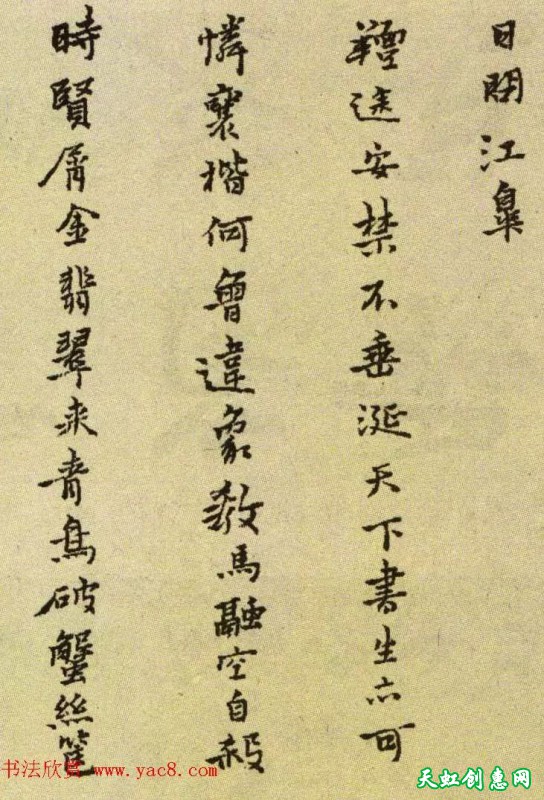 日閒江臯
羶途安禁不垂涎天下書生亦可
憐襄楷何曾違象教馬融空自殺
時賢屑金翡翠来青鳥破蟹絲筐
书法欣赏 www.yac8.com
天虹创惠网